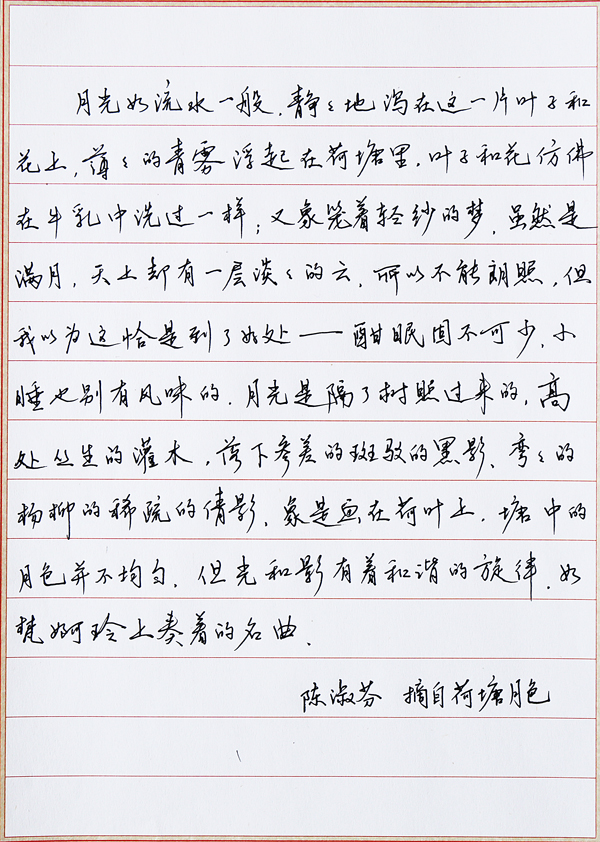 月光如流水一般.静々地泻在这一片叶子和
花上,薄々的青雾浮起在荷塘里.叶子和花仿佛
在牛乳中洗过一样;又象笼着轻纱的梦.虽然是
满月,天上却有一层淡々的云,所以不能朗照,但
我以为这恰是到了好处——酣眠固不可少,小
睡也别有风味的.月光是隔了树照过来的,高
处丛生的灌木,落下参差的斑驳的黑影、弯々的
杨柳的稀疏的倩影,象是画在荷叶上.塘中的
月色并不均匀.但光和影有着和谐的旋律,如
梵婀玲上奏着的名曲.
陈淑芬 摘自荷塘月色